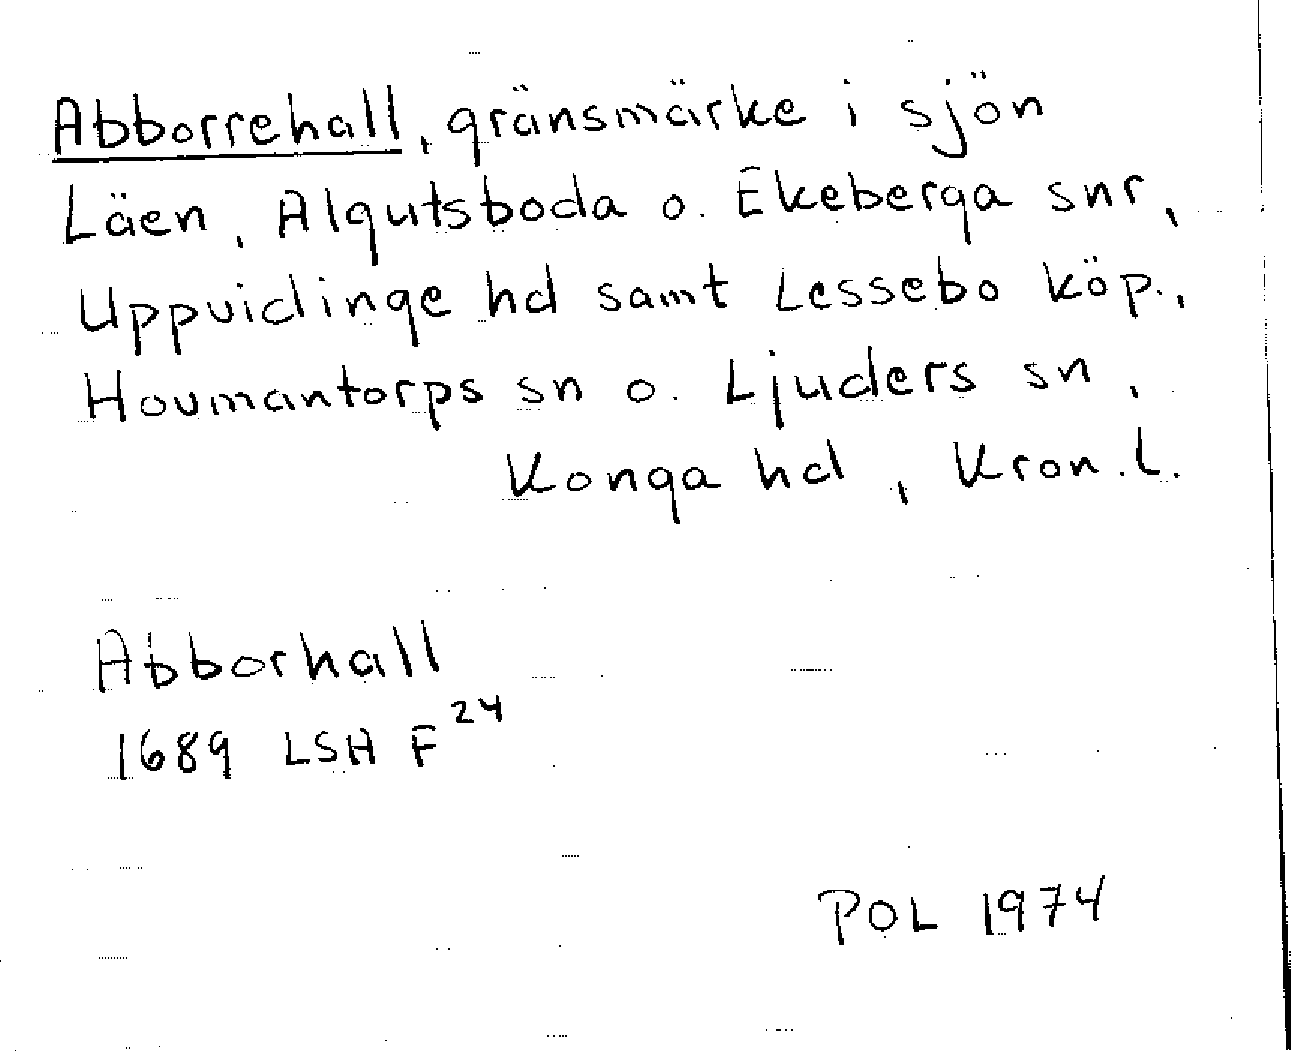 Abborrehall, gränsmärke i sjön
Läen, Algutsboda o. Ekeberga snr,
Uppvidinge hd samt Lessebo köp.,
Hovmantorps sn o. Ljuders sn,
Konga hd, Kron.l.
Abborhall
1689 LSH F 24
POL 1974